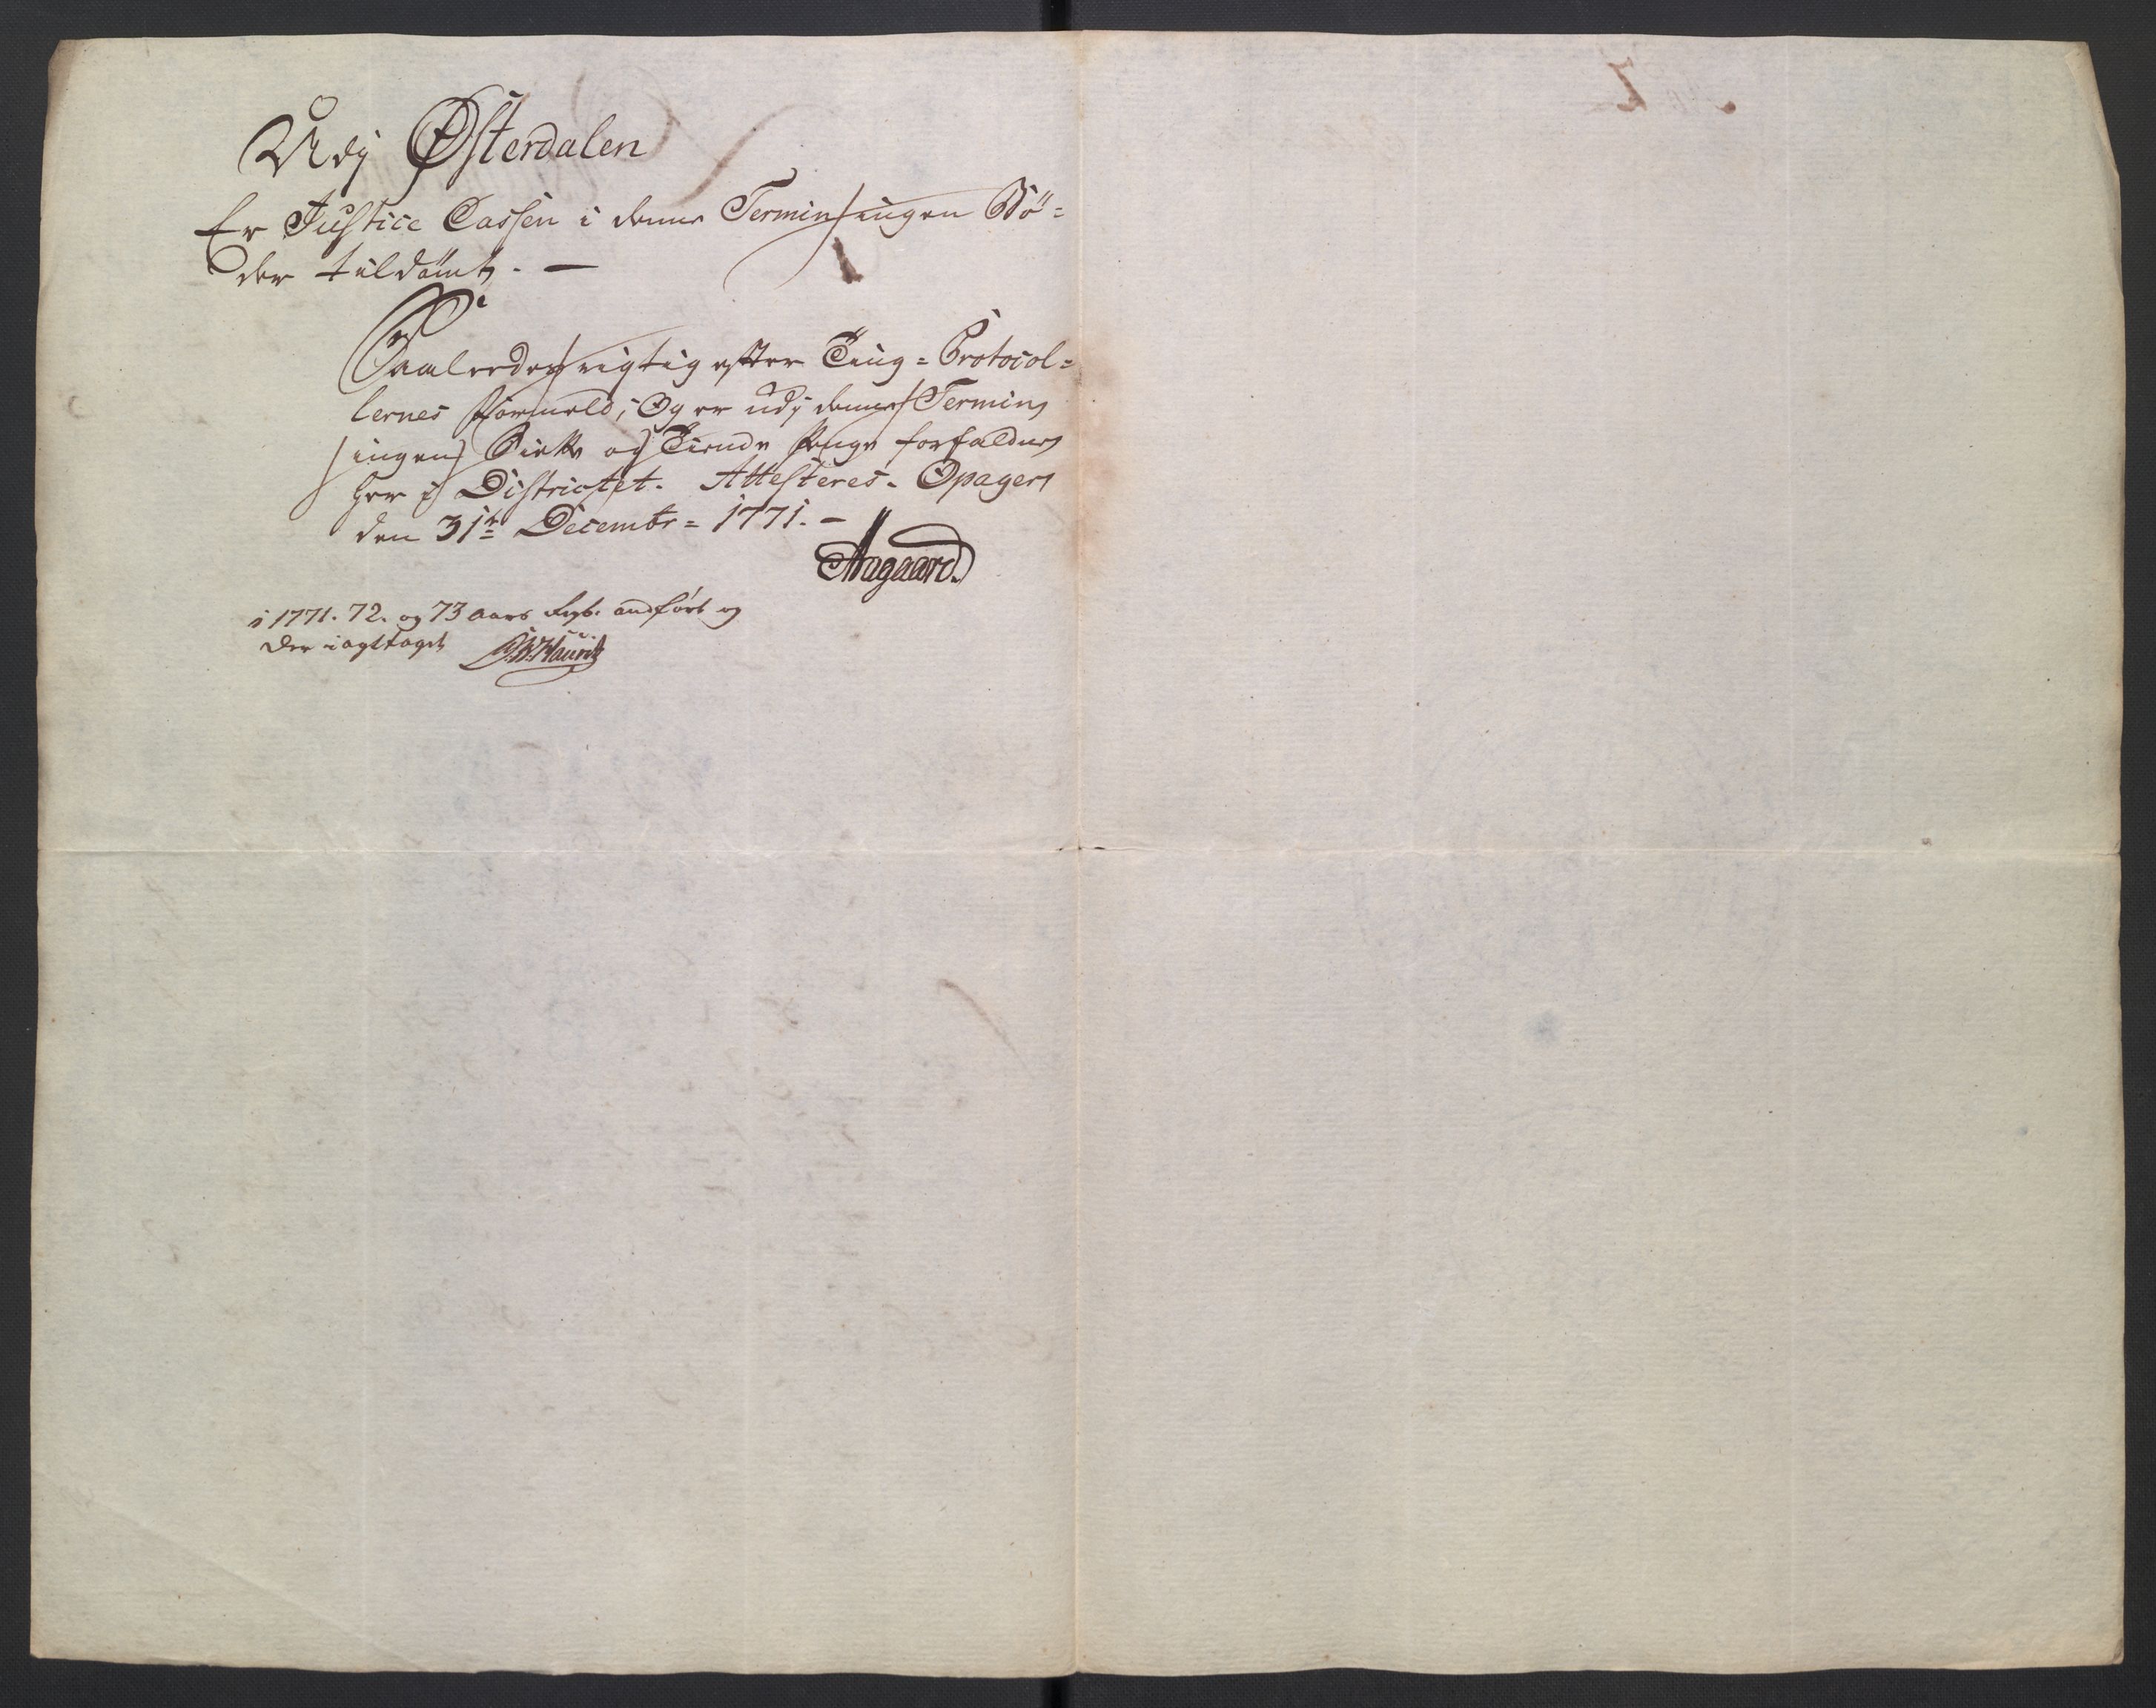 Udj Østerdalen
Er Justice Cassen i denne Termin ingen Bö=
der tildömt. —
Saaledes rigtig efter Ting=Protocol=
lernes Formeld; Og er udj denne Termin
ingen Siette og Tiende Penge forfalden
her i Districtet. Attesteres. Opager
den 31te Decembr= 1771. –
Aagaard.
i 1771. 72. og 73 aars Regb. andført og
der iagttaget